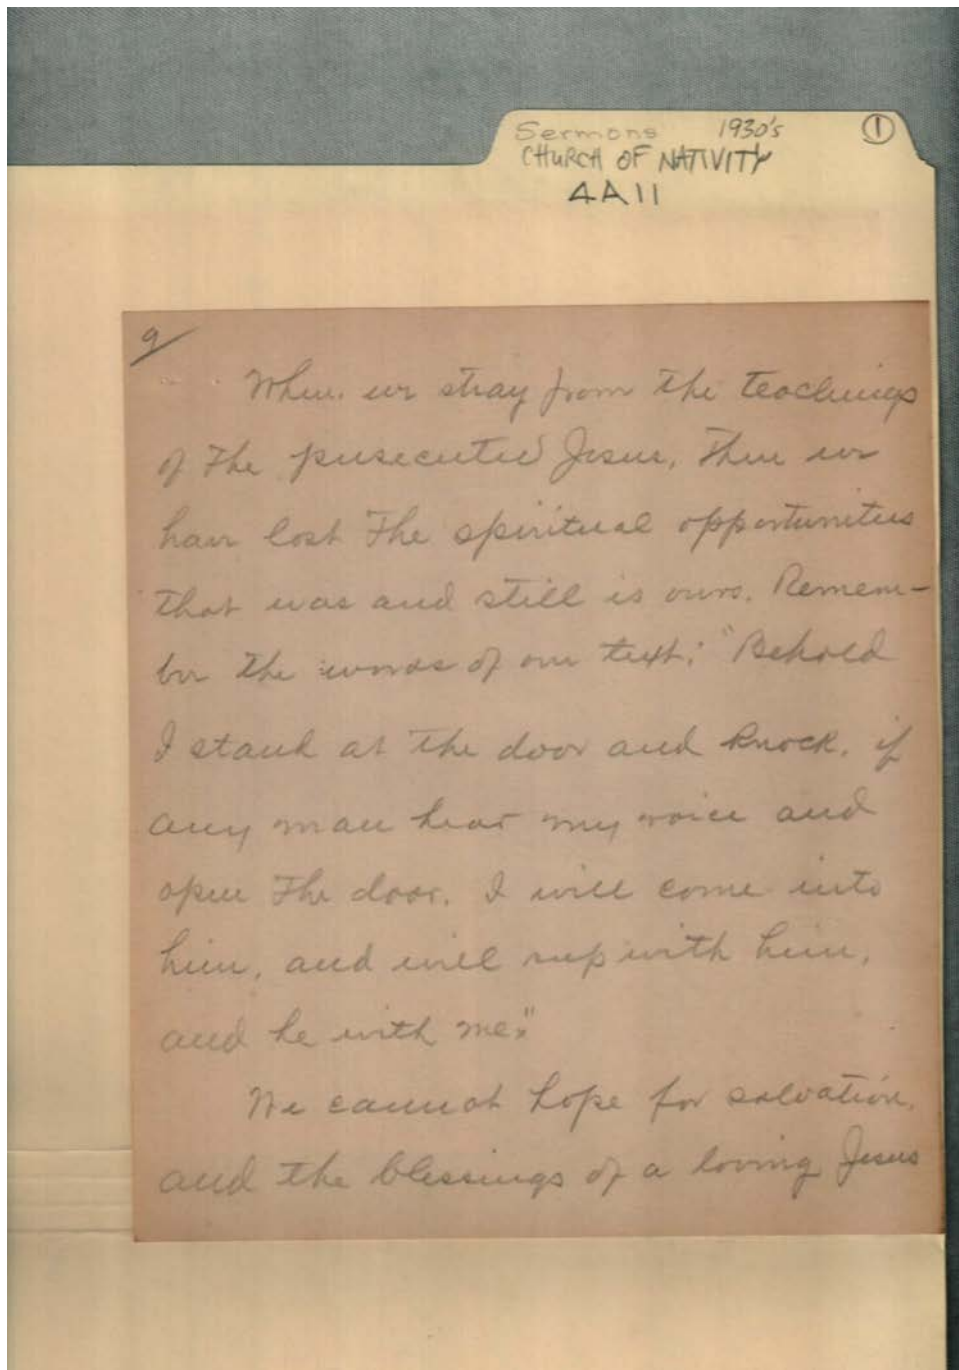 Sermons 1930's ①
CHURCH OF NATIVITY
4A11
9/
When we stray from the teachings
of the persecuted Jesus, then we
have lost the spiritual opportunities
that was and still is ours. Remem-
ber the words of our text; "Behold
I stand at the door and knock, if
any man hear my voice and
open the door. I will come into
him, and will sup with him,
and he with me."
We cannot hope for salvation,
and the blessings of a loving Jesus